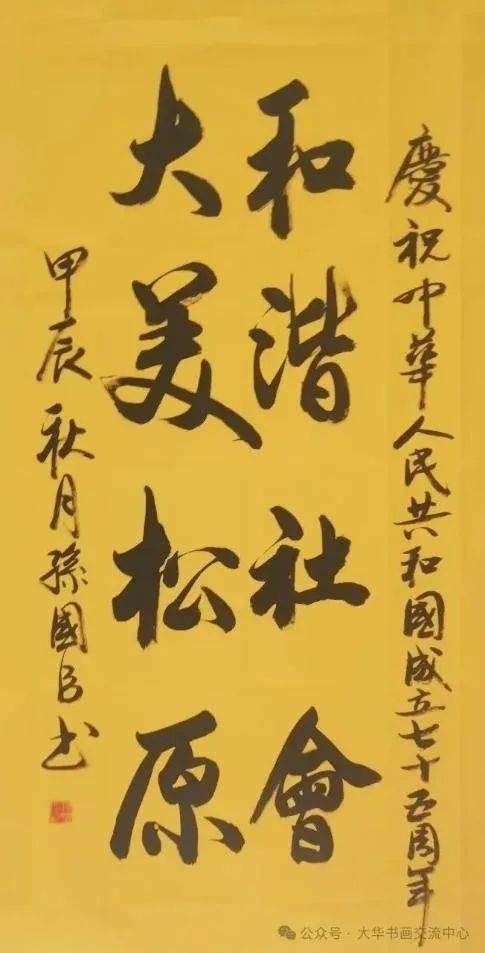 慶祝中華人民共和國成立七十五周年
和谐社會
大美松原
甲辰秋月孫國
书
公众号·大华书画交流中心